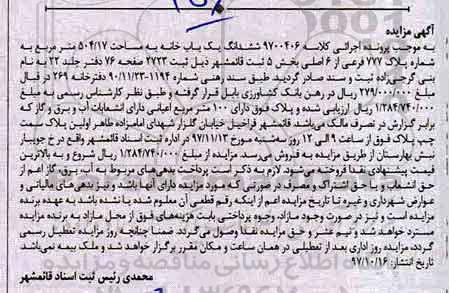 آگهی مزایده
به موجب پرونده اجرائی کلاسه ۹۷۰۰۴۰۶ ششدانگ یک باب خانه به مساحت ۵۰۴/۱۷ متر مربع به
شماره پلاک ۷۷۷ فرعی از ۶ اصلی بخش ۵ ثبت قائمشهر ذیل ثبت ۲۷۲۳ صفحه ۷۶ دفتر جلد ۲۲ به نام
بنی گرجی‌زاده ثبت و سند صادر گردید. طبق سند رهنی شماره ۱۱۹۴-۹۰/۱۱/۲۳ دفترخانه ۲۶۹ در قبال
مبلغ ۲۷۹/۰۰۰/۰۰۰ ریال در رهن بانک کشاورزی بابل قرار گرفته و طبق نظر کارشناس رسمی به مبلغ
۱/۲۸۴/۷۴۰/۰۰۰ ریال ارزیابی شده و پلاک فوق دارای ۱۰۰ متر مربع اعیانی دارای انشعابات آب و برق و گاز که
برابر گزارش در تصرف مالک می‌باشد. قائمشهر فراخیل خیابان گلزار شهدای امامزاده طاهر اولین پلاک سمت
چپ پلاک فوق از ساعت ۹ الی ۱۲ روز سه‌شنبه مورخ ۹۷/۱۱/۱۳ در اداره ثبت اسناد قائمشهر واقع در خ جویبار
نبش بهارستان از طریق مزایده به فروش می‌رسد. مزایده از مبلغ ۱/۲۸۴/۷۴۰/۰۰۰ ریال شروع و به بالاترین
قیمت پیشنهادی نقدا فروخته می‌شود. لازم به ذکر است پرداخت بدهی‌های مربوط به آب، برق، گاز اعم از
حق انشعاب و یا حق اشتراک و مصرف در صورتی که مورد مزایده دارای آنها باشد و نیز بدهی‌های مالیاتی و
عوارض شهرداری و غیره تا تاریخ مزایده اعم از اینکه رقم قطعی آن معلوم شده یا نشده باشد به عهده برنده
مزایده است و نیز در صورت وجود مازاد، وجوه پرداختی بابت هزینه‌های فوق از محل مازاد به برنده مزایده
مسترد خواهد شد و نیم عشر و حق مزایده نقدا وصول می‌گردد. ضمنا چنانچه روز مزایده تعطیل رسمی
گردد، مزایده روز اداری بعد از تعطیلی در همان ساعت و مکان مقرر برگزار خواهد شد و ملک بیمه نمی‌باشد.
تاریخ انتشار: ۹۷/۱۰/۱۶
محمدی رئیس ثبت اسناد قائمشهر